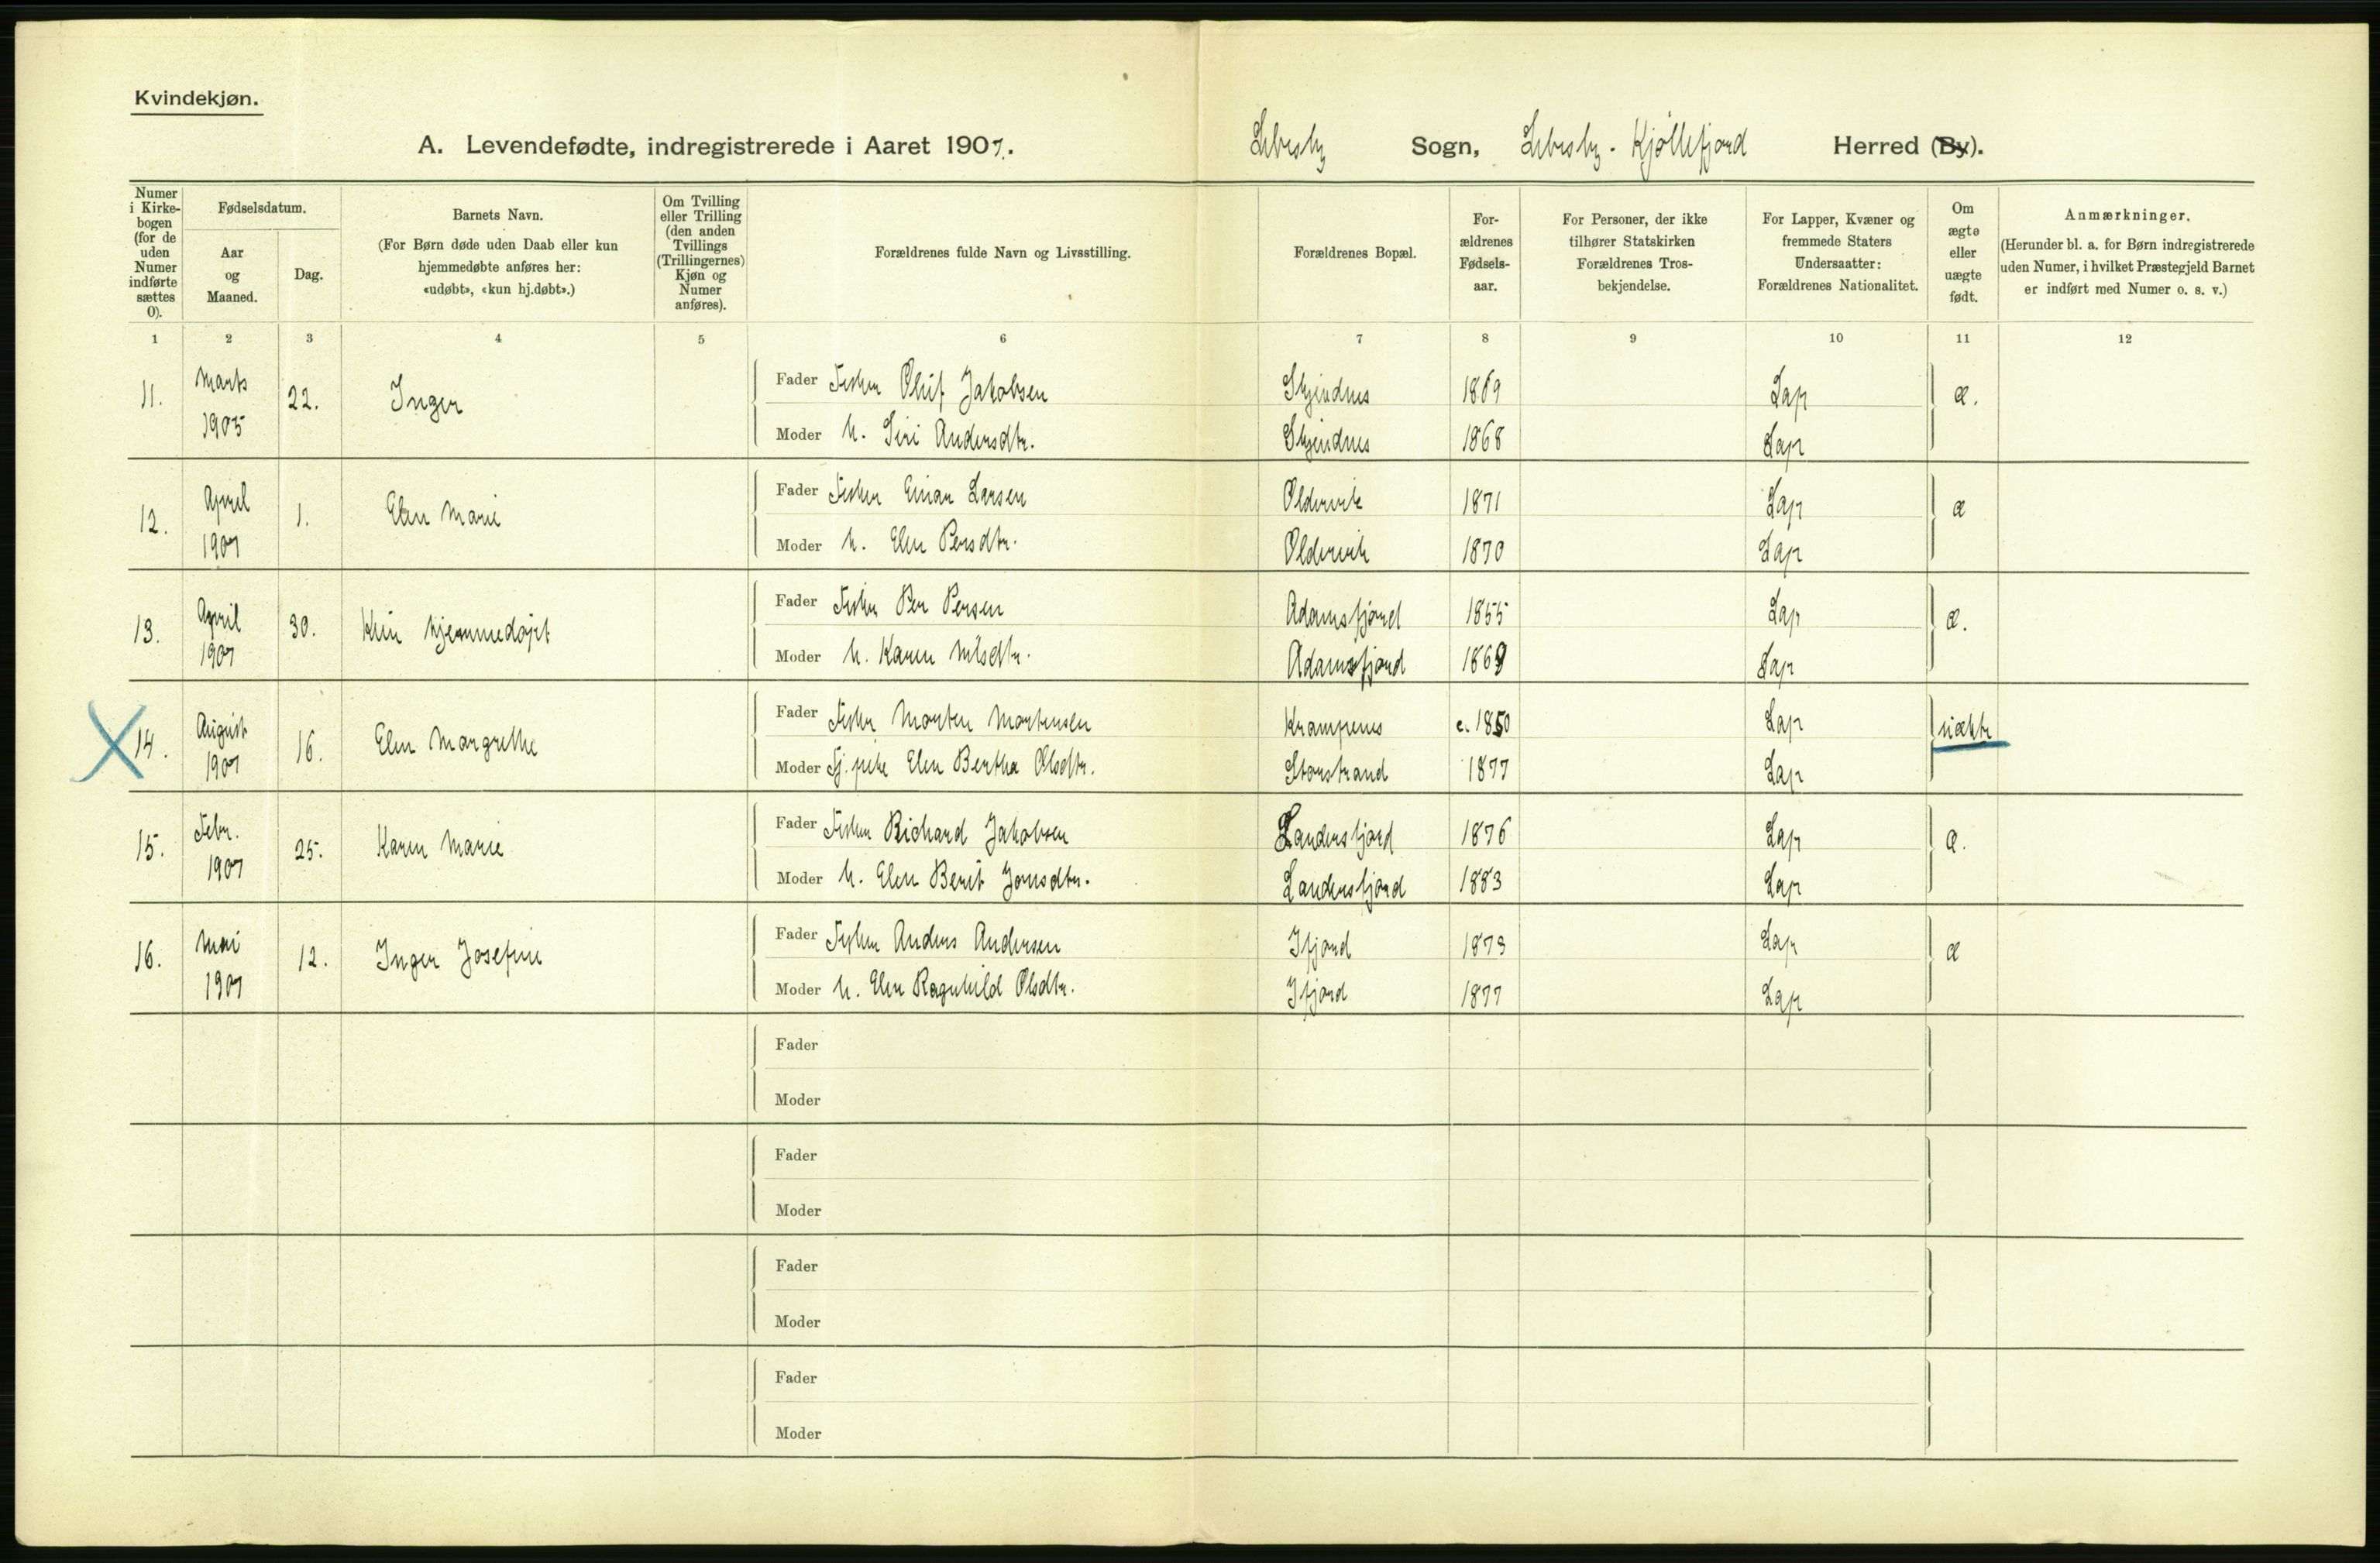 Kvindekjøn.
A. Levendefødte, indregistrerede i Aaret 1907. Lebesby Sogn, Lebesby-Kjöllefjord Herred (By).
Numer i Kirkebogen (for de uden Numer indførte sættes 0).
Fødselsdatum.
Aar og Maaned.
Dag.
Barnets Navn.
(For Børn døde uden Daab eller kun hjemmedøbte anføres her: «udøbt», «kun hj.døbt».)
Om Tvilling eller Trilling (den anden Tvillings (Trillingernes) Kjøn og Numer anføres).
Forældrenes fulde Navn og Livsstilling.
Forældrenes Bopæl.
Forældrenes Fødselsaar.
For Personer, der ikke tilhører Statskirken Forældrenes Trosbekjendelse.
For Lapper, Kvæner og fremmede Staters Undersaatter: Forældrenes Nationalitet.
Om ægte eller uægte født.
Anmærkninger.
(Herunder bl. a. for Børn indregistrerede uden Numer, i hvilket Præstegjeld Barnet er indført med Numer o. s. v.)
1 2 3 4 5 6 7 8 9 10 11 12
11. Marts 1905 22. Inger
Fader Fisker Oluf Jakobsen Skjendnes 1869 Lap æ.
Moder h. Siri Andersdtr. Skjendnes 1868 Lap
12. April 1907 1. Elen Marie
Fader Fisker Einar Larsen Oldervik 1871 Lap æ
Moder h. Elen Persdtr. Oldervik 1870 Lap
13. April 1907 30. Kun hjemmedøpt
Fader Fisker Per Persen Adamsfjord 1855 Lap æ.
Moder h. Karen Nilsdtr. Adamsfjord 1869 Lap
14. August 1907 16. Elen Margrethe
Fader Fisker Morten Mortensen Krampenes c. 1850 Lap uækte
Moder Fj. pike Elen Bertha Olsdtr. Storstrand 1877 Lap
15. Febr. 1907 25. Karen Marie
Fader Fisker Richard Jakobsen Landersfjord 1876 Lap æ.
Moder h. Elen Berit Jonsdtr. Landersfjord 1883 Lap
16. Mai 1907 12. Inger Josefine
Fader Fisker Anders Andersen Ifjord 1873 Lap æ
Moder h. Elen Ragnhild Olsdtr. Ifjord 1877 Lap
Fader
Moder
Fader
Moder
Fader
Moder
Fader
Moder